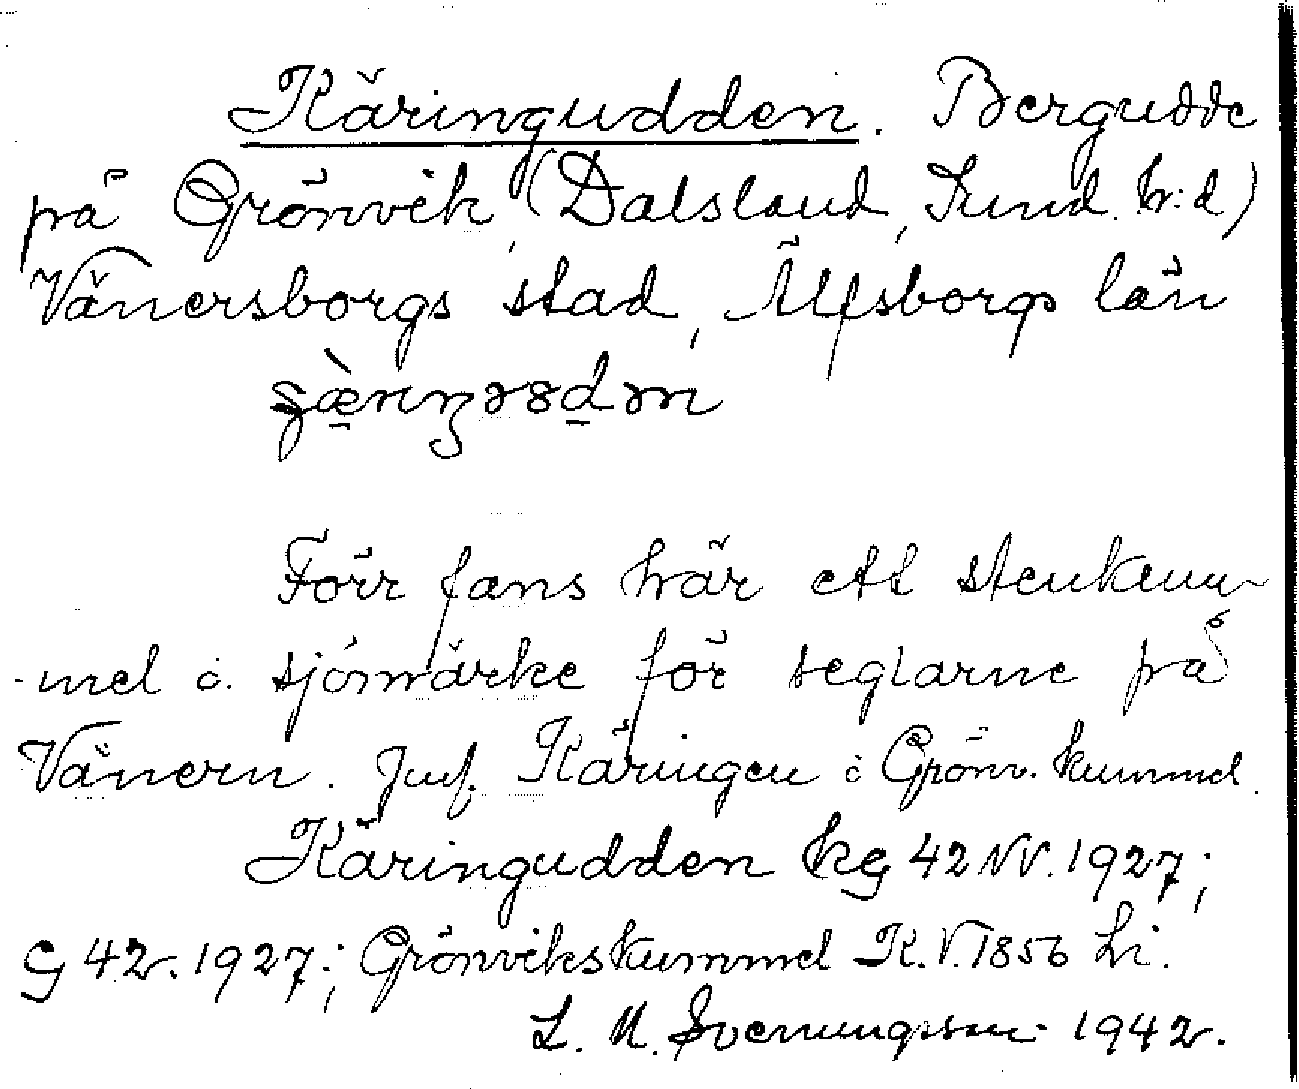 Käringudden. Bergudde
på Grönvik (Dalsland, Sund. hr:d)
Vänersborgs stad, Älfsborgs län
Förr fans här ett stenkum-
mel o. sjömärke för seglarne på
Vänern. Jmf. Käringen o Grönv. kummel.
Käringudden kg 42 NV. 1927;
G 42. 1927; Grönvikskummel K.V. 1856 Li.
L. M. Svenungsson 1942.